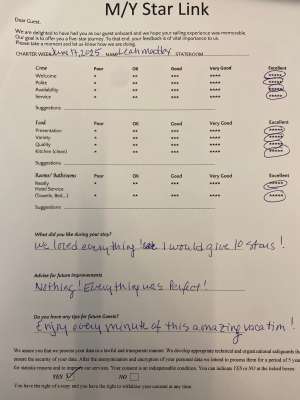 M/Y Star Link
Dear Guest,
We are delighted to have had you as our guest onboard and we hope your sailing experience was memorable.
Our goal is to offer you a five-star journey. To that end, your feedback is of vital importance to us.
Please take a moment and let us know how we are doing.
CHARTER WEEK June 14, 2025 NAME Leah STATEROOM
Crew Poor OK Good Very Good Excellent
Welcome * ** *** **** *****
Polite * ** *** **** *****
Availability * ** *** **** *****
Service * ** *** **** *****
Suggestions
Food Poor OK Good Very Good Excellent
Presentation * ** *** **** *****
Variety * ** *** **** *****
Quality * ** *** **** *****
Kitchen (clean) * ** *** **** *****
Suggestions:
Rooms/ Bathrooms Poor OK Good Very Good Excellent
Neatly * ** *** **** *****
Hotel Service
(Towels, Bed...) * ** *** **** *****
Suggestions
What did you like during your stay?
We loved everything! I would give 10 stars!
Advise for future improvements
Nothing! Everything was Perfect!
Do you have any tips for future Guests?
Enjoy every minute of this amazing vacation!
We assure you that we process your data in a lawful and transparent manner. We develop appropriate technical and organisational safeguards to
ensure the security of your data. After the anonymization and encryption of your personal data we intend to process them for a period of 5 years
for statistic reasons and to improve our services. Your consent is an indispensable condition. You can indicate YES or NO at the naked boxes.
YES NO
You have the right of a copy and you have the right to withdraw your consent at any time.